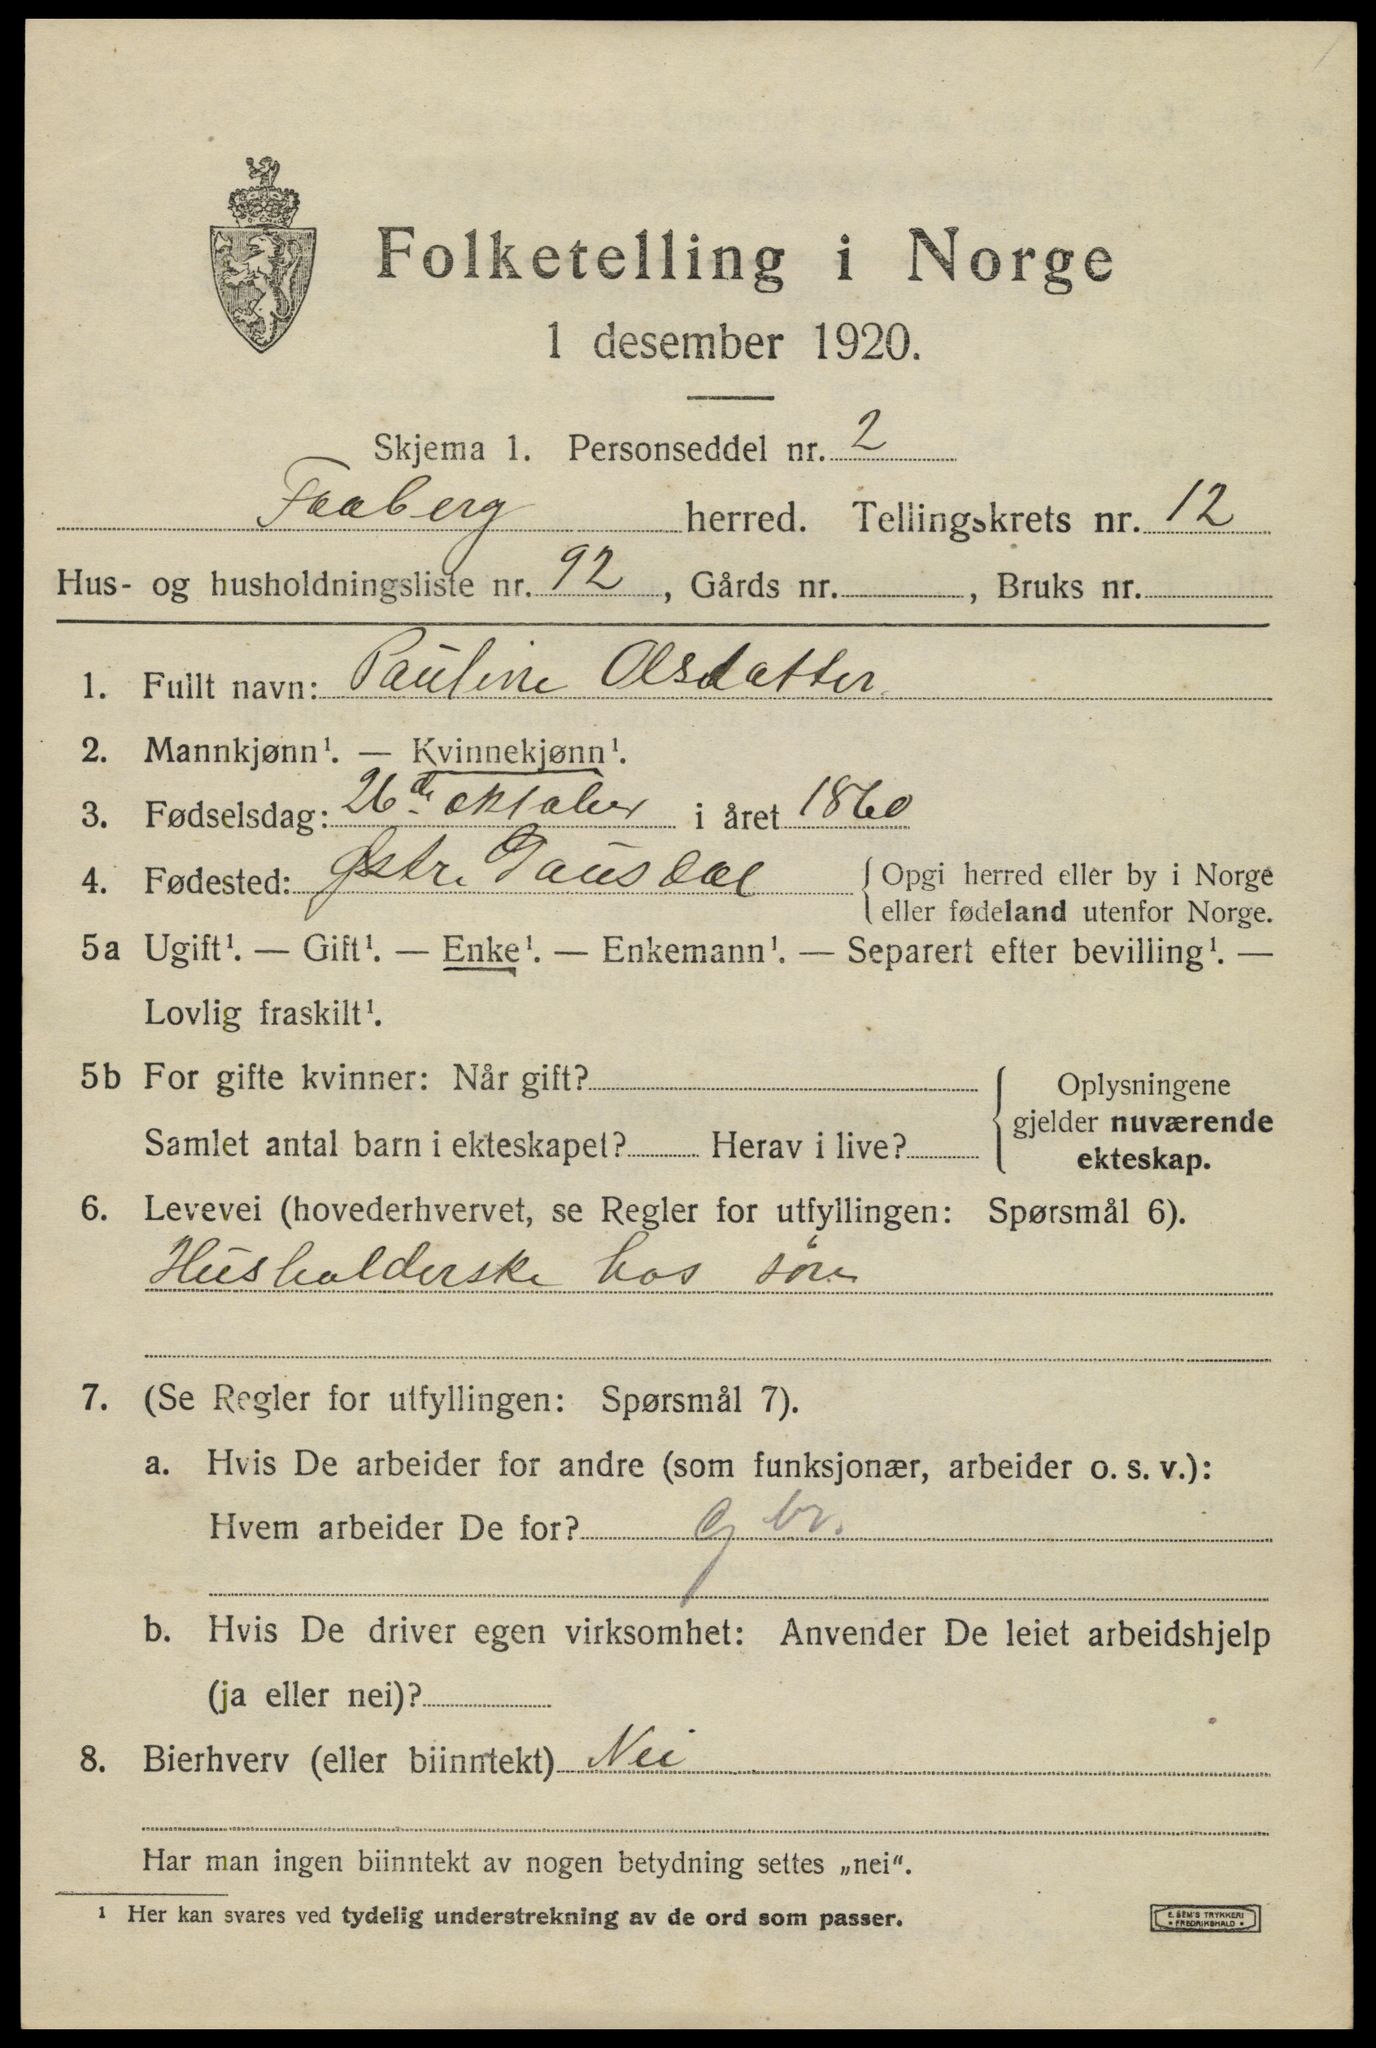 Folketelling i Norge
1 desember 1920.
Skjema 1. Personseddel nr. 2
Faaberg herred. Tellingskrets nr. 12
Hus- og husholdningsliste nr. 92, Gårds nr. , Bruks nr.
1. Fullt navn: Pauline Olsdatter
2. Mannkjønn¹. — Kvinnekjønn¹.
3. Fødselsdag: 26de oktober i året 1860
4. Fødested: Østre Gausdal { Opgi herred eller by i Norge
eller fødeland utenfor Norge.
5a Ugift¹. — Gift¹. — Enke¹. — Enkemann¹. — Separert efter bevilling¹. —
Lovlig fraskilt¹.
5b For gifte kvinner: Når gift? { Oplysningene
gjelder nuværende
Samlet antal barn i ekteskapet? Herav i live?
ekteskap.
6. Levevei (hovederhvervet, se Regler for utfyllingen: Spørsmål 6).
Husholderske hos søn
7. (Se Regler for utfyllingen: Spørsmål 7).
a. Hvis De arbeider for andre (som funksjonær, arbeider o. s. v.):
Hvem arbeider De for? g br.
b. Hvis De driver egen virksomhet: Anvender De leiet arbeidshjelp
(ja eller nei)?
8. Bierhverv (eller biinntekt) Nei
Har man ingen biinntekt av nogen betydning settes „nei“.
¹ Her kan svares ved tydelig understrekning av de ord som passer.
E. SEM'S TRYKKERI
• FREDRIKSHALD •